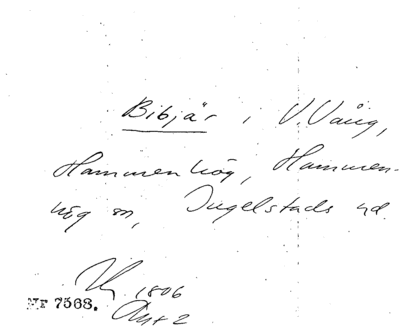 Bibjär i V. Vång,
Hammenhög, Hammen-
hög sn, Ingelstads hd.
1806
NF 7568.
Akt 2